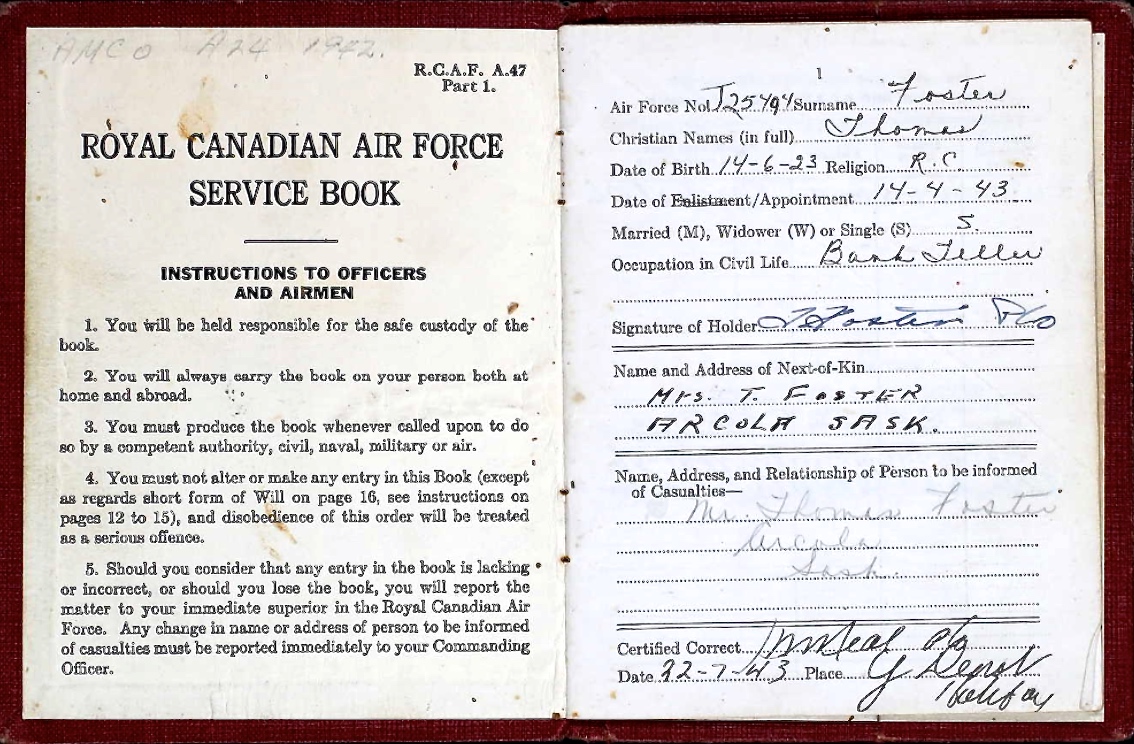 AMCO A24 1942.
R.C.A.F. A.47
Part 1.
ROYAL CANADIAN AIR FORCE
SERVICE BOOK
INSTRUCTIONS TO OFFICERS
AND AIRMEN
1. You will be held responsible for the safe custody of the
book.
2. You will always carry the book on your person both at
home and abroad.
3. You must produce the book whenever called upon to do
so by a competent authority, civil, naval, military or air.
4. You must not alter or make any entry in this Book (except
as regards short form of Will on page 16, see instructions on
pages 12 to 15), and disobedience of this order will be treated
as a serious offence.
5. Should you consider that any entry in the book is lacking
or incorrect, or should you lose the book, you will report the
matter to your immediate superior in the Royal Canadian Air
Force. Any change in name or address of person to be informed
of casualties must be reported immediately to your Commanding
Officer.
1
Air Force No. J25494 Surname Foster
Christian Names (in full) Thomas
Date of Birth 14-6-23 Religion R.C.
Date of Enlistment/Appointment 14-4-43
Married (M), Widower (W) or Single (S) S.
Occupation in Civil Life Bank Teller
Signature of Holder T Foster P/O
Name and Address of Next-of-Kin
Mrs. T. FOSTER
ARCOLA SASK.
Name, Address, and Relationship of Person to be informed
of Casualties—
Mr. Thomas Foster
Arcola
Sask.
Certified Correct
Date 22-7-43 Place Y Depot
Halifax